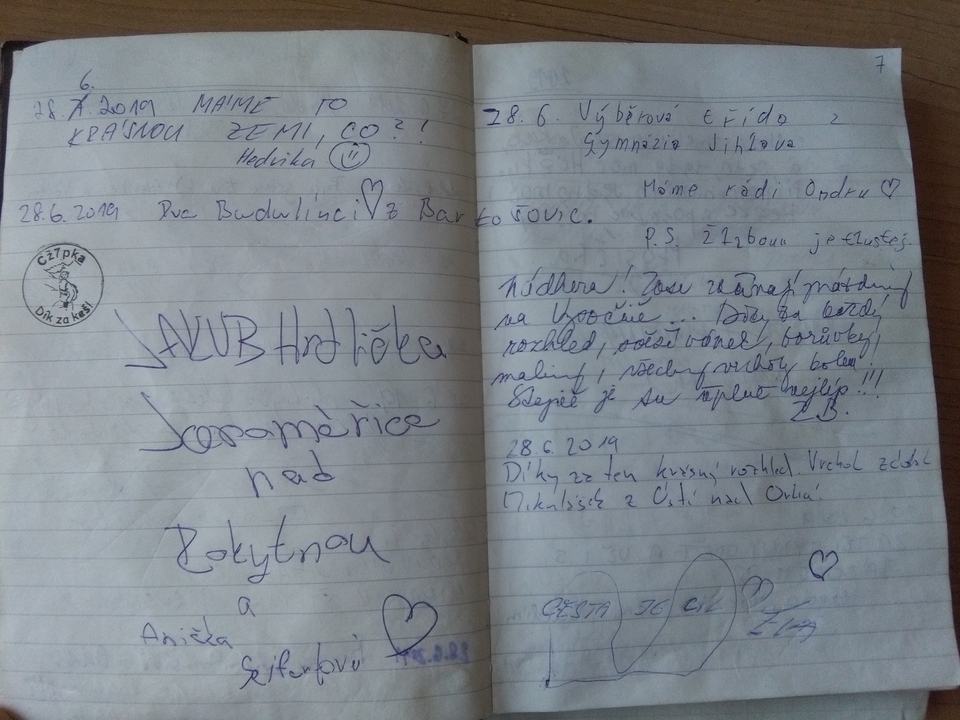 28. 6. 2019 MÁME TO
KRÁSNOU ZEMI, CO?!
Hedvika
28.6. 2019 Dva Budulínci z Bartošovic.
CŽ7pka
Dík za keš!
JAKUB Hrdlička
Jaroměřice
nad
Rokytnou
a
Anička
Seifertová
28.6.2019
7
28. 6. Výběrová třída z
Gymnázia Jihlava
Máme rádi Ondru
P.S. je tlustej.
Nádhera! Zase začínají prázdniny
na Vysočině... Díky za každý
rozhled, vánek, borůvky,
maliny, všechny vrcholy kolem.
Stejně je tu úplně nejlíp!!!
ZB.
28.6.2019
Díky za ten krásný rozhled. Vrchol zdobil
Mikulášek z Ústí nad Orlicí.
CESTA JE CÍL